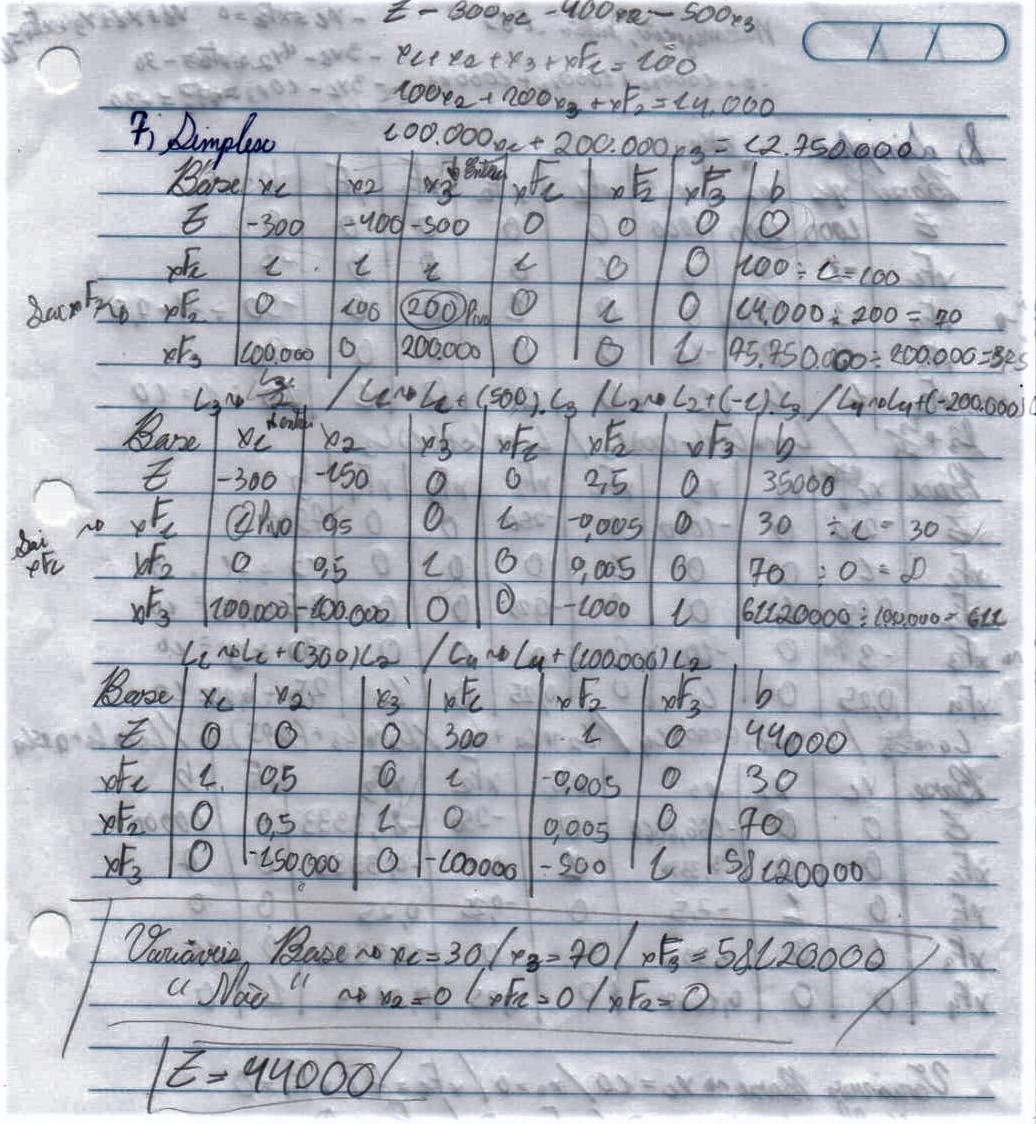 Z - 300x1 - 400x2 - 500x3
x1 + x2 + x3 + xF1 = 100
100x2 + 200x3 + xF2 = 14.000
7) Simplex 100.000x1 + 200.000x3 = 12.750.000
Base x1 x2 x3 Entra xF1 xF2 xF3 b
Z -300 -400 -500 0 0 0 0
xF1 1 1 1 1 0 0 100 ÷ 1 = 100
Sai xF2 xF2 0 100 200 Pivo 0 1 0 14.000 ÷ 200 = 70
xF3 100.000 0 200.000 0 0 1 75.750.000 ÷ 200.000 =
L1 ~> L1 + (500).L3 / L2 ~> L2 + (-1).L3 / L4 ~> L4 + (-200.000)
Base x1 entra x2 x3 xF1 xF2 xF3 b
Z -300 -150 0 0 2,5 0 35000
Sai xF1 xF1 1 Pivo 0,5 0 1 -0,005 0 30 ÷ 1 = 30
xF2 0 0,5 1 0 0,005 0 70 ÷ 0 = ∞
xF3 100.000 -100.000 0 0 -1000 1 61120000 ÷ 100.000 = 611
L1 ~> L1 + (300)L2 / L4 ~> L4 + (100.000)L2
Base x1 x2 x3 xF1 xF2 xF3 b
Z 0 0 0 300 1 0 44000
xF1 1 0,5 0 1 -0,005 0 30
xF2 0 0,5 1 0 0,005 0 70
xF3 0 -150.000 0 -100000 -500 1 58120000
Variáveis Base ~> x1 = 30 / x3 = 70 / xF3 = 58120.000
" Não " ~> x2 = 0 / xF1 = 0 / xF2 = 0
Z = 44000